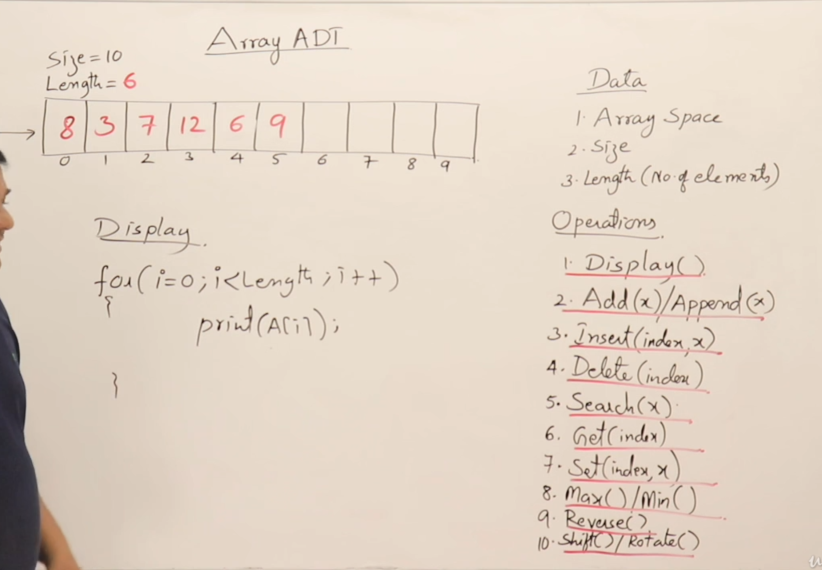 Array ADT
Size=10
Length=6
8 3 7 12 6 9
0 1 2 3 4 5 6 7 8 9
Display
for(i=0;i<Length;i++)
{
print(A[i]);
}
Data
1. Array Space
2. Size
3. Length (No. of elements)
Operations
1. Display()
2. Add(x)/Append(x)
3. Insert(index,x)
4. Delete(index)
5. Search(x)
6. Get(index)
7. Set(index,x)
8. Max()/Min()
9. Reverse()
10. Shift()/Rotate()